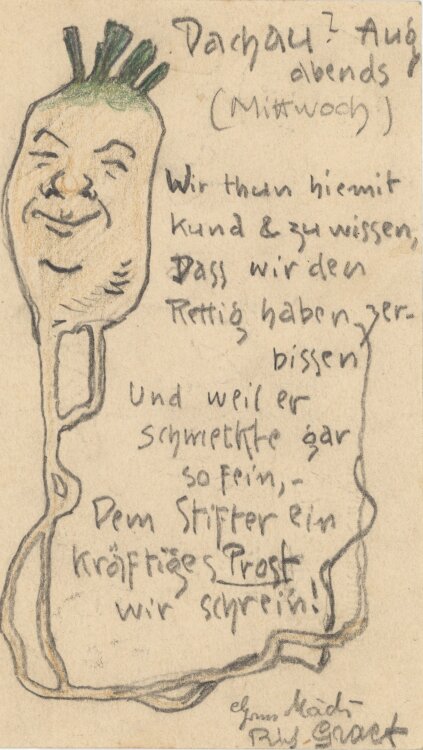 Dachau ? Aug
abends
(Mittwoch)
Wir thun hiemit
Kund & zu wissen,
Dass wir den
Rettig haben zer-
bissen
Und weil er
schmekte gar
so fein,-
Dem Stifter ein
Kräftiges Prost
wir schrein!